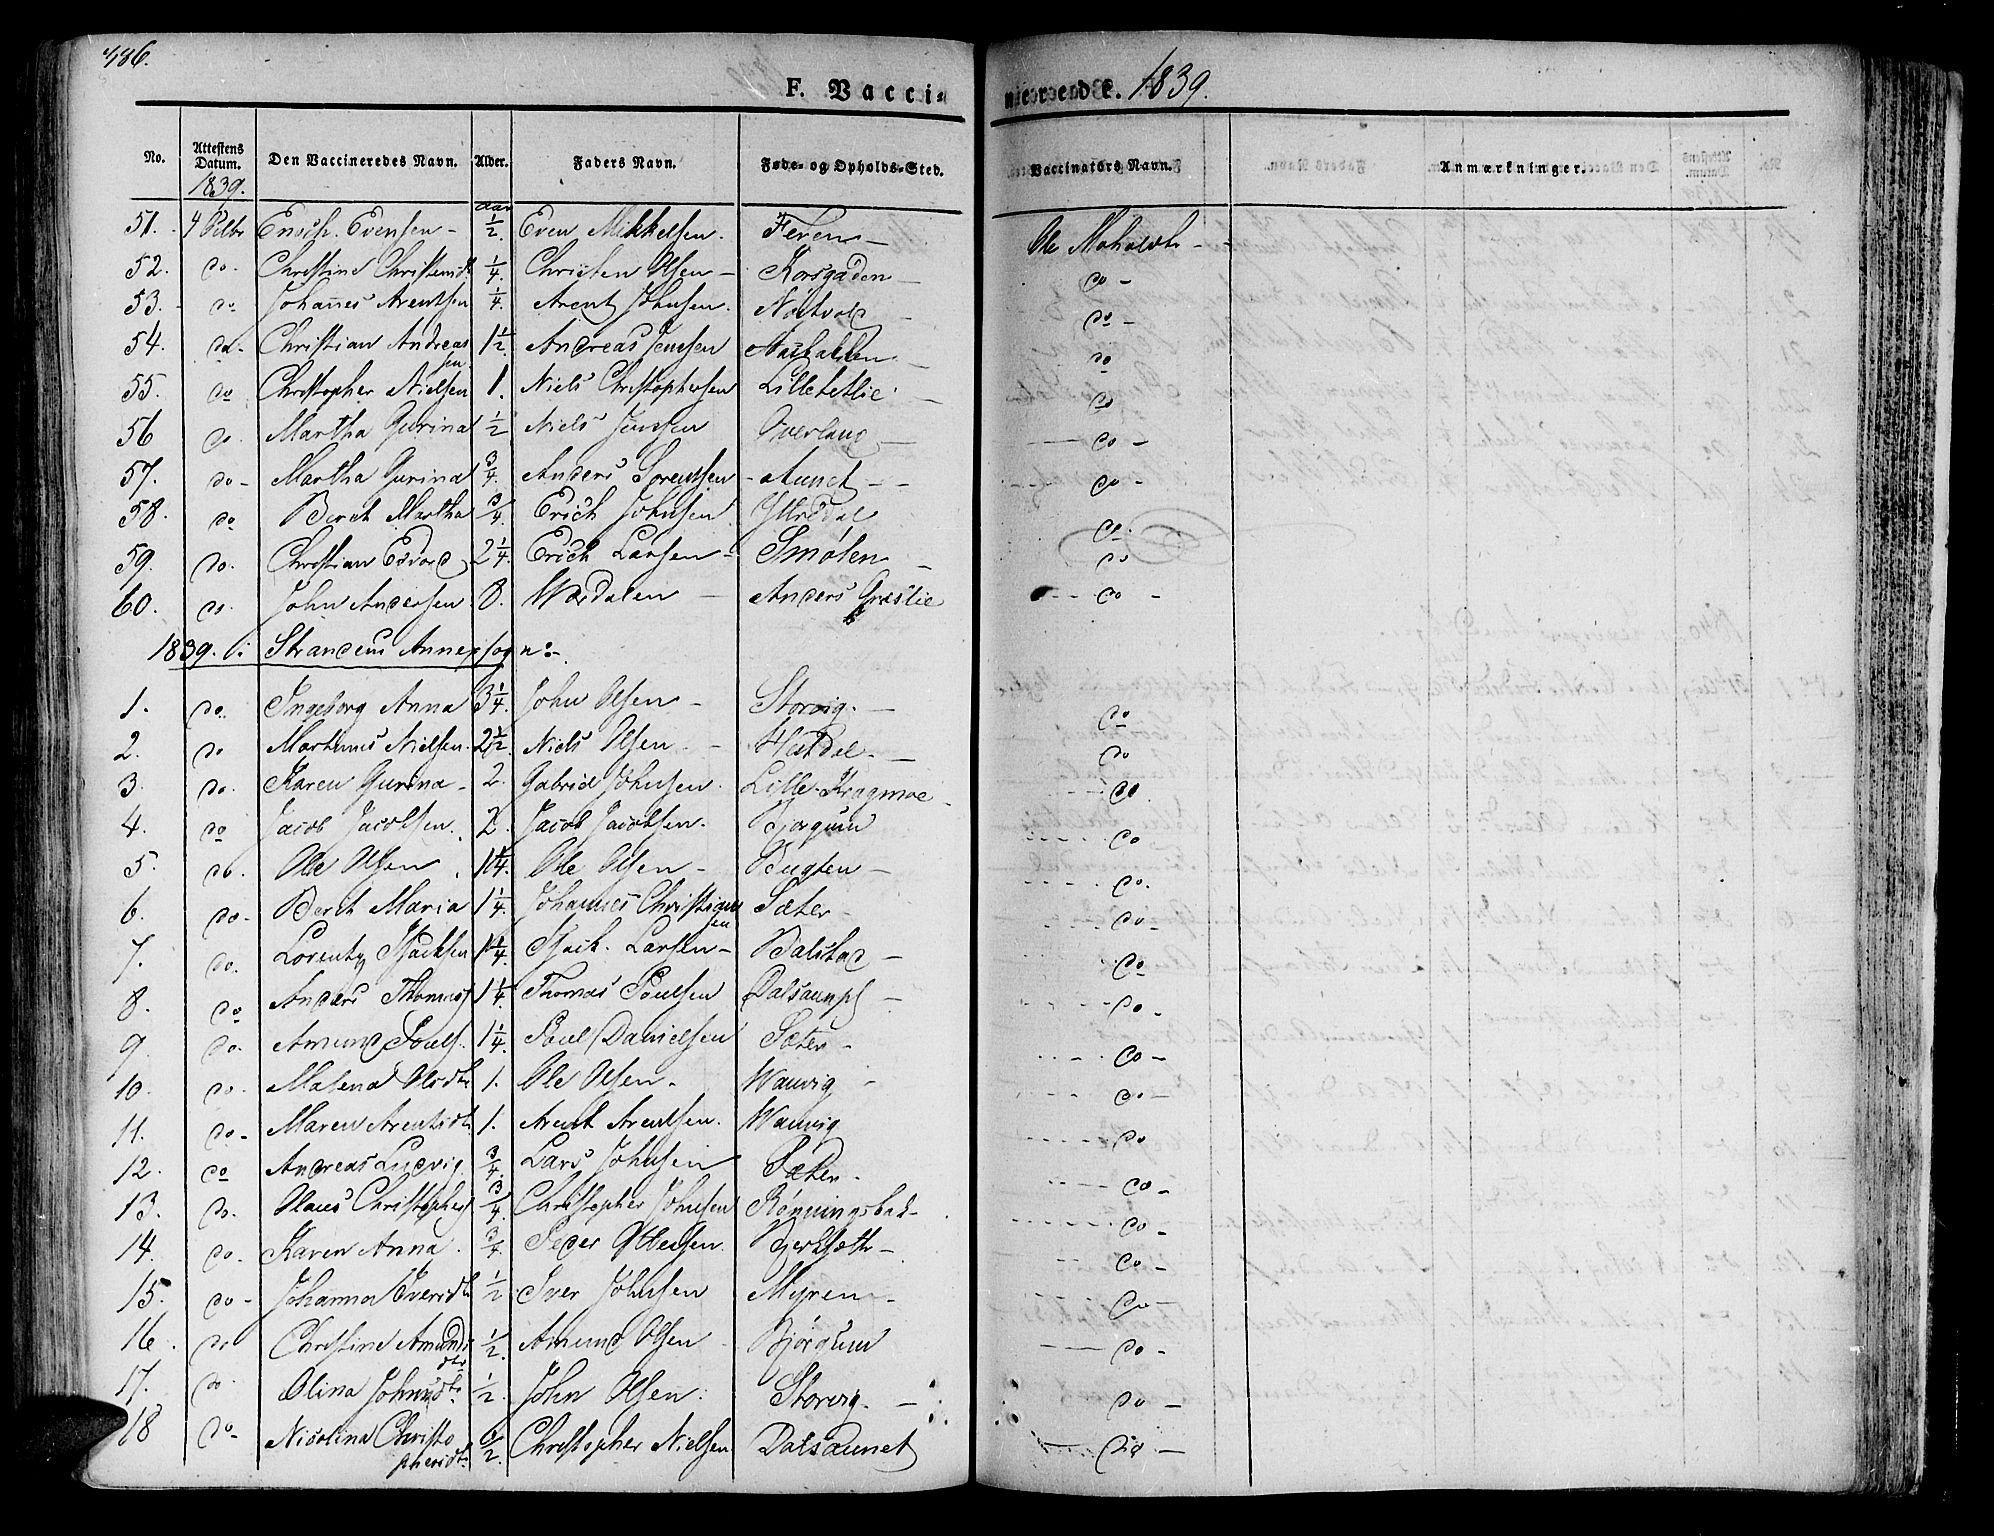 486.
F. Vacci-
nerede. 1839.
No. Attestens Datum. Den Vaccineredes Navn. Alder. Faders Navn. Føde- og Opholds-Sted. Vaccinators Navn. Anmærkninger.
1839. aar
51. 4 Enoch Evensen - 1/2 Even Mikkelsen. Feren - Ole Moholdt -
52. do. Christine Christensdt 1/4 Christen Olsen - Korsgaden - do -
53. do Johannes Arentsen 1/4. Arent Johnsen. Nøstvold - do -
54. do. Christian Andreas 1 1/2. Andreas Jensen do
sen
55. do Christopher Nielsen 1. Niels Christophersen Lilletetlie - do
56 do. Martha Gurina 1/2 Niels Jensen Overland - do -
57. do - Martha Gurina 3/4. Anders Sorentsen - Aunet - - do -
58. do Beret Martha 3/4 Erich Johnsen Yttredal do.
59. do. Christian Edvard 2 1/4. Erich Larsen - Smølen - do
60. do. John Andersen 8. Wærdalen - Anders Græslie do -
1839. i: Strandens Annexsogn:-
1. do. Ingeborg Anna 3 1/4. John Olsen - Storvig. - do
2. do Martinus Nielsen. 2 1/2. Niels Olsen. - Hutdal. - do
3. do. Karen Gurina - 2. Gabriel Johnsen. Lille-Kragmoe - do.
4. do Jacob Jacobsen. 2. Jacob Jacobsen. Bjørgum do
5. do. Ole Olsen 1 1/4. Ole Olsen - Bugten - do.
6. do. Beret Maria 1 1/4. Johannes Christian Sæter - do -
sen
7. do. Lorentz Isachsen 1 1/4 Isach. Larsen - Balstad - do
8. do Anders Thomas 1 1/4. Thomas Poulsen Dalsaunet - do -
9. do. Amund Pouls. 1 1/4. Poul Danielsen Sæter - do -
10. do. Malena Olsdtr 1. Ole Olsen - Wanvig - do -
11. do - Maren Arentsdt. 1. Arent Arentsen. Wanvig do
12. do Andreas Ludvig 3/4. Lars Johnsen Sæter - do -
13. do. Olaus Christophers 3/4. Christopher Johnsen Rønningsbak - do -
14. do. Karen Anna. 3/4 Peder Ottesen. Bjerksæth - do -
15. do - Johanna Iversdt 1/2 Iver Johnsen Myren - do -
16. do Christine Amunds 1/2. Amund Olsen Bjørgum do -
dtr
17. do. Olina Johnsdt. 1/2. John Olsen. Storvig. - do -
18 do - Nicolina Christo 1/2 Christopher Nielsen Dalsaunet do -
phersdt.